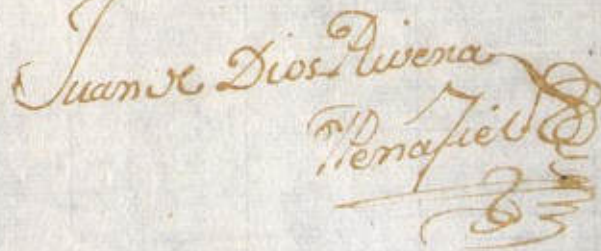 Juan de Dios Rivera
Peñafiel